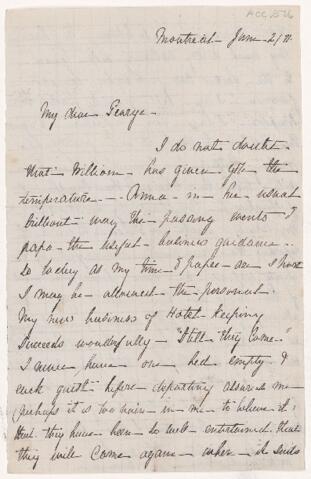 ACC. 826
Montreal - June 2/
My dear George -
I do not doubt -
that William - has given you the
temperature - - Anna - in her usual
brilliant way the passing events &
papa - the useful - business guidance -
So to day as my time & paper - are short
I may be - allowed - the personal.
My new business of Hotel Keeping
Succeeds wonderfully - "Still they Come -"
I never have one bed empty &
each guest - before departing assures me -
(perhaps it is too vain - in me - to believe it)
that they have been - so well - entertained that
they will Come again - when - it suits